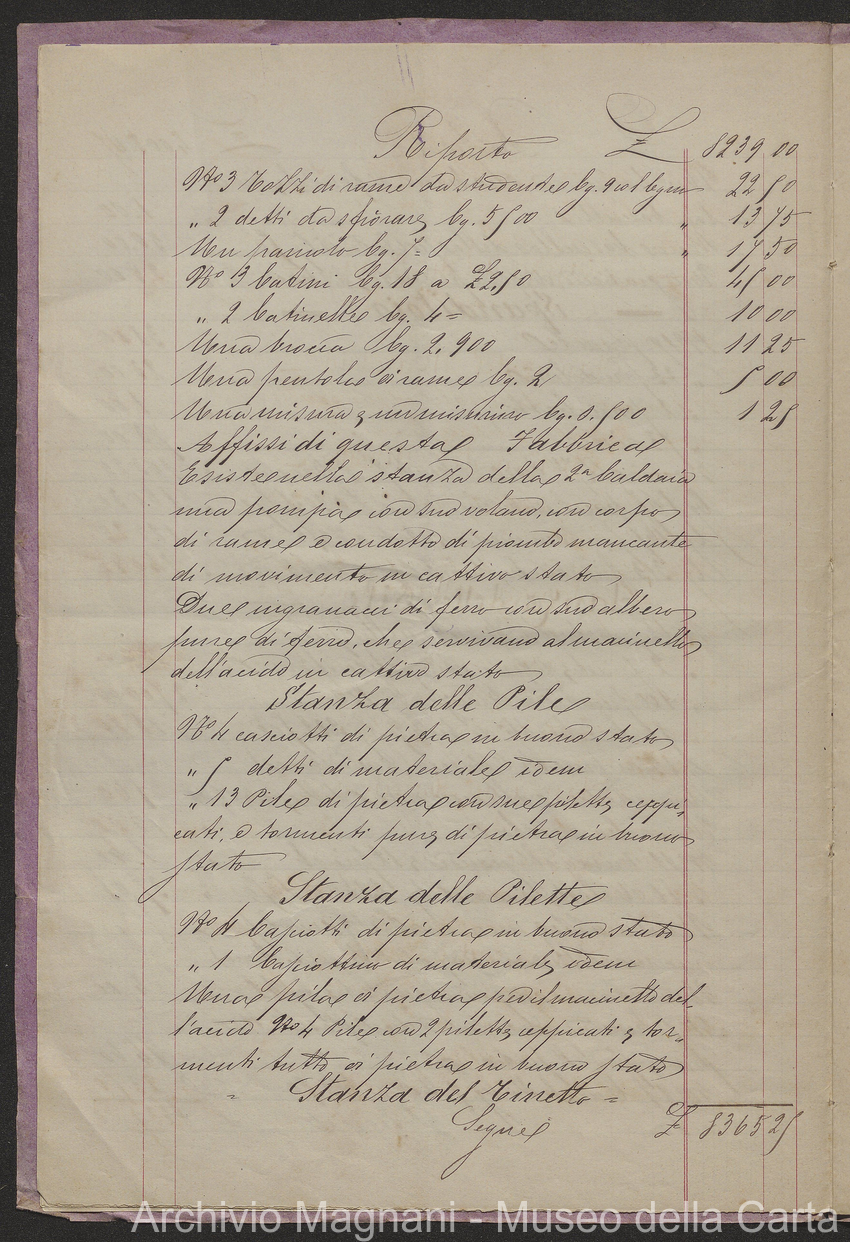 Riporto £ 8239 00
No 3 Tozzi di rame da studente Cg. 9 22 50
" 2 detti da sfiorare Cg. 5500 " 13 75
Un paniolo Cg. 7= " 17 50
No 3 Catini Cg. 18 a £2,50 45 00
" 2 Catinelle Cg. 4= 10 00
Una brocca Cg. 2,900 11 25
Una pentola di rame Cg. 2 5 00
Una misura e un misurino Cg. 0.500 1 25
Affissi di questa Fabbrica
Esiste nella stanza della 2a Caldaia
una pompa con suo volano, con corpo
di rame e condotto di piombo mancante
di movimento in cattivo stato
Due ingranaci di ferro con suo albero
pure di ferro, che servivano al macinello
dell'acido in cattivo stato
Stanza delle Pile
No 4 casciotti di pietra in buono stato
" 5 detti di materiale idem
" 13 Pile di pietra con sue pilette ceppi,
cati, e tormenti pure di pietra in buono
stato
Stanza delle Pilette
No 4 Casciotti di pietra in buono stato
" 1 Casciottino di materiale idem
Una pila di pietra pel macinello del,
l'acido No 4 Pile con 2 pilette ceppicati e tor,
menti tutto di pietra in buono stato
" Stanza del Tinetto =
Segue £ 8365 25
Archivio Magnani - Museo della Carta